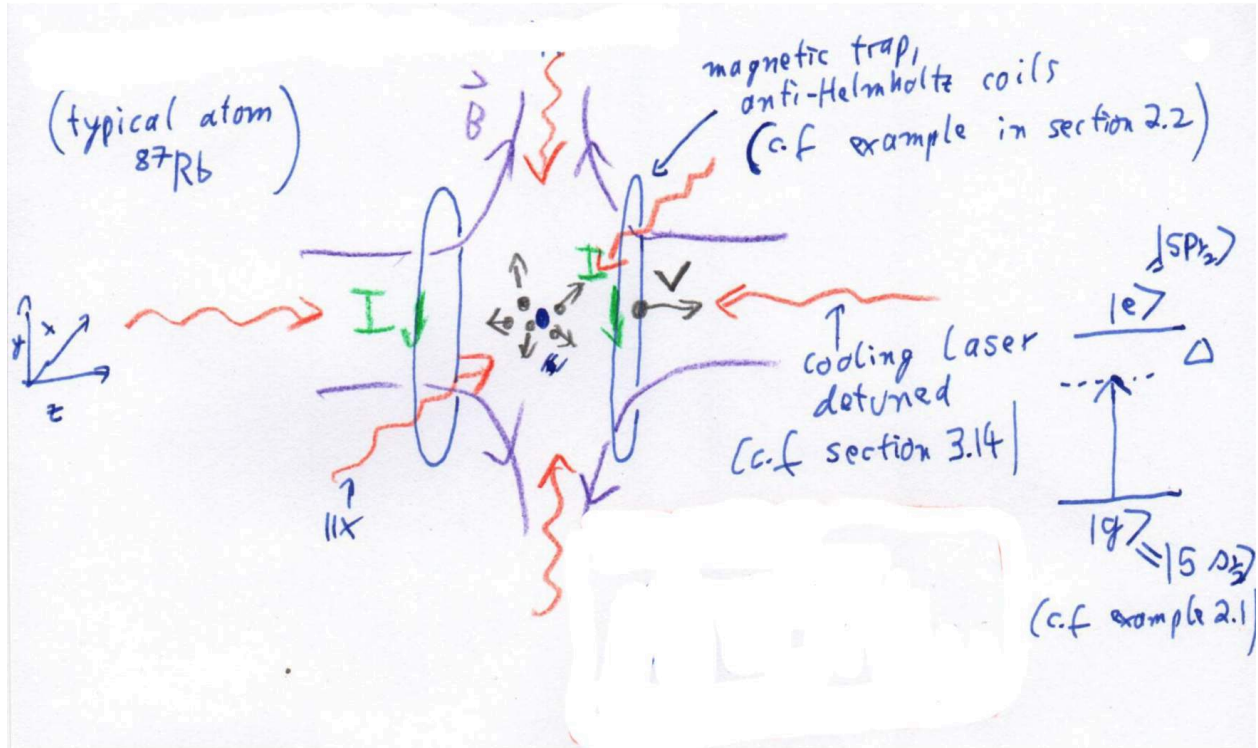 (typical atom
⁸⁷Rb)
B
magnetic trap,
anti-Helmholtz coils
(c.f example in section 2.2)
I
I
V
y
x
z
cooling laser
detuned
(c.f section 3.14)
|e>
Δ
|g>
(c.f example 2.1)
||x